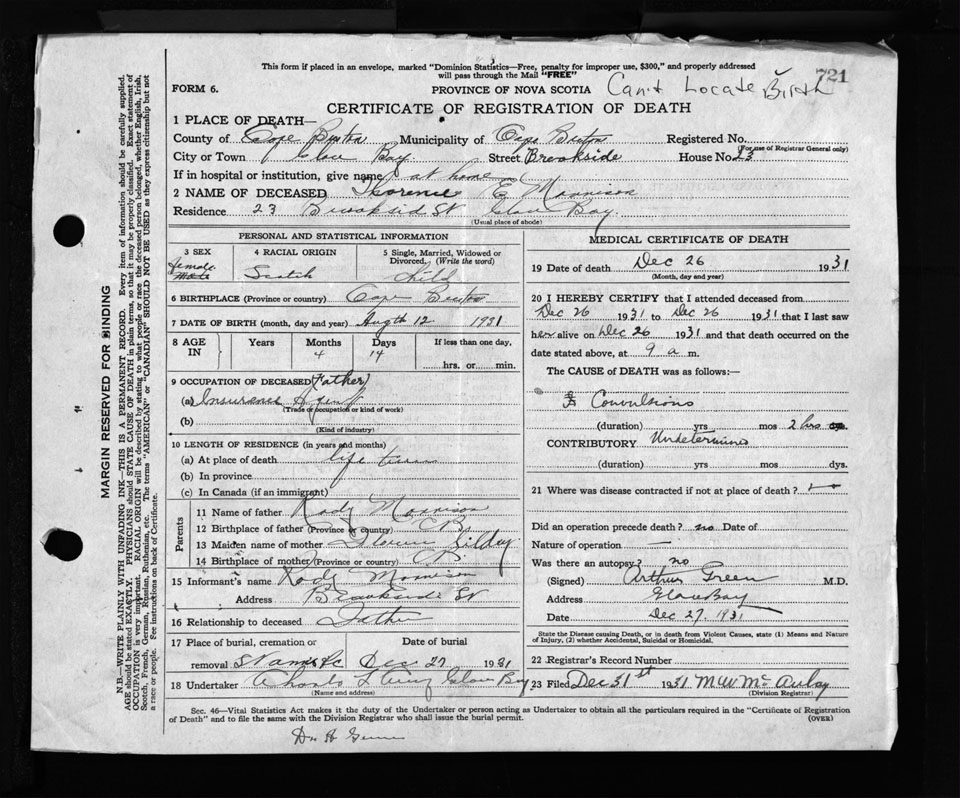 This form if placed in an envelope, marked "Dominion Statistics—Free, penalty for improper use, $300," and properly addressed
will pass through the Mail "FREE"
721
FORM 6.
PROVINCE OF NOVA SCOTIA
Can't Locate Birth
CERTIFICATE OF REGISTRATION OF DEATH
1 PLACE OF DEATH—
County of Cape Breton Municipality of Cape Breton Registered No.
(For use of Registrar General only)
City or Town Glace Bay Street Brookside House No. 23
If in hospital or institution, give name at home
2 NAME OF DECEASED Florence E Morrison
Residence 23 Brooksid St Glace Bay
(Usual place of abode)
PERSONAL AND STATISTICAL INFORMATION
3 SEX
female
4 RACIAL ORIGIN
Scotch
5 Single, Married, Widowed or
Divorced, (Write the word)
Child
6 BIRTHPLACE (Province or country) Cape Breton
7 DATE OF BIRTH (month, day and year) Augth 12 1931
8 AGE IN
Years
Months
4
Days
14
If less than one day,
hrs. or min.
9 OCCUPATION OF DECEASED (Father)
(a) Insurance Agent
(Trade or occupation or kind of work)
(b)
(Kind of industry)
10 LENGTH OF RESIDENCE (in years and months)
(a) At place of death life time
(b) In province
(c) In Canada (if an immigrant)
Parents
11 Name of father Rody Morrison
12 Birthplace of father (Province or country) C B.
13 Maiden name of mother
14 Birthplace of mother (Province or country) C B.
15 Informant's name Rody Morrison
Address Brookside St
16 Relationship to deceased Father
17 Place of burial, cremation or
removal
Date of burial
Dec 27 1931
18 Undertaker Glace Bay
(Name and address)
MEDICAL CERTIFICATE OF DEATH
19 Date of death Dec 26 1931
(Month, day and year)
20 I HEREBY CERTIFY that I attended deceased from
Dec 26 1931 to Dec 26 1931 that I last saw
her alive on Dec 26 1931 and that death occurred on the
date stated above, at 9 a m.
The CAUSE of DEATH was as follows:—
Convulsions
(duration) yrs mos 2 hrs dys.
CONTRIBUTORY Undetermined
(duration) yrs. mos. dys.
21 Where was disease contracted if not at place of death?
Did an operation precede death? no Date of
Nature of operation —
Was there an autopsy? no
(Signed) Arthur Green M.D.
Address Glace Bay
Date Dec 27, 1931
State the Disease causing Death, or in death from Violent Causes, state (1) Means and Nature
of Injury, (2) whether Accidental, Suicidal or Homicidal.
22 Registrar's Record Number
23 Filed Dec 31st 1931
(Division Registrar)
Sec. 46—Vital Statistics Act makes it the duty of the Undertaker or person acting as Undertaker to obtain all the particulars required in the "Certificate of Registration
of Death" and to file the same with the Division Registrar who shall issue the burial permit.
(OVER)
MARGIN RESERVED FOR BINDING
N.B.—WRITE PLAINLY WITH UNFADING INK—THIS IS A PERMANENT RECORD. Every item of information should be carefully supplied.
AGE should be stated EXACTLY. PHYSICIANS should STATE CAUSE OF DEATH in plain terms, so that it may be properly classified. Exact statement of
OCCUPATION is very important. RACIAL ORIGIN will be described by stating to what people or race the deceased person belonged, whether English, Irish,
Scotch, French, German, Russian, Ruthenian, etc. The terms "AMERICAN" or "CANADIAN" SHOULD NOT BE USED as they express citizenship but not
a race or people. See instructions on back of Certificate.